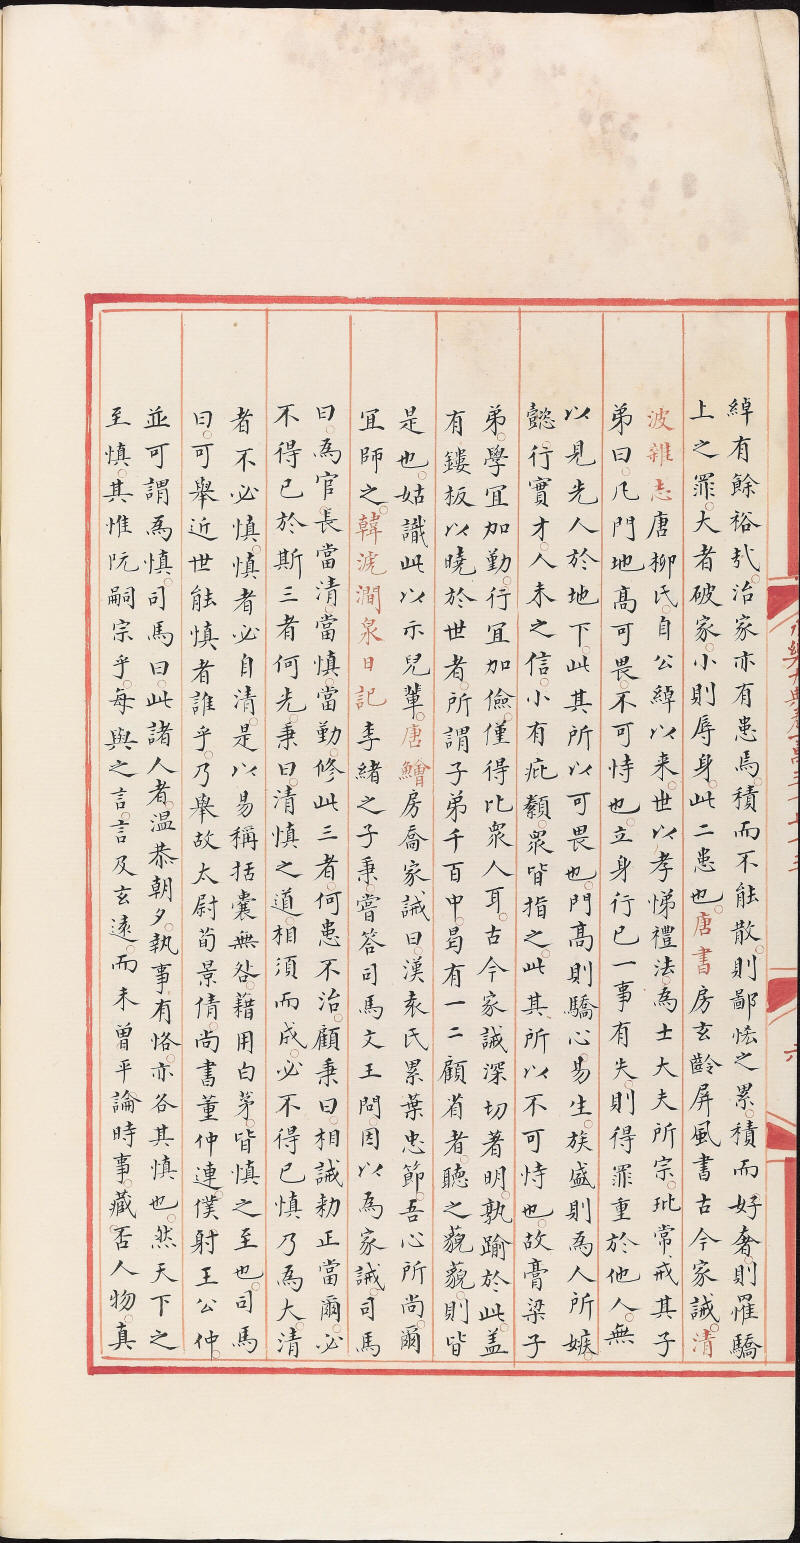 綽有餘裕㢤。治家亦有患焉。積而不能散。則鄙恡之累。積而好奢。則罹驕
上之罪。大者破家。小則辱身。此二患也。唐書房玄齡屏風書古今家誡。清
波雜志唐柳氏。自公綽以来。世以孝悌禮法。為士大夫所宗。玭常戒其子
弟曰。凡門地髙可畏。不可恃也。立身行已一事有失。則得罪重於他人。無
以見先人於地下。此其所以可畏也。門髙則驕心易生。族盛則為人所嫉。
懿行實才。人未之信。小有疵纇。衆皆指之。此其所以不可恃也。故膏梁子
弟。學宜加勤。行宜加儉。僅得比衆人耳。古今家誡深切著明。孰踰於此。盖
有鏤板以曉於世者。所謂子弟千百中。曷有一二顧省者。聽之藐藐。則皆
是也。姑識此以示兒軰。唐鱠房喬家誡曰。漢袁氏累葉忠節。吾心所尚。爾
宜師之。韓淲澗泉日記李緒之子秉。嘗答司馬文王問。因以為家誡。司馬
曰。為官長當清。當慎。當勤。修此三者。何患不治。顧秉曰。相誡勑正當爾。必
不得已於斯三者何先。秉曰。清慎之道。相須而成。必不得已慎乃為大。清
者不必慎。慎者必自清。是以易稱括囊無咎。藉用白茅。皆慎之至也。司馬
曰。可舉近世能慎者誰乎。乃舉故太尉荀景倩。尚書董仲連。僕射王公仲。
並可謂為慎。司馬曰。此諸人者。温恭朝夕。執事有恪。亦各其慎也。然天下之
至慎。其惟阮嗣宗乎。每與之言。言及玄遠。而未曾平論時事。藏否人物。真